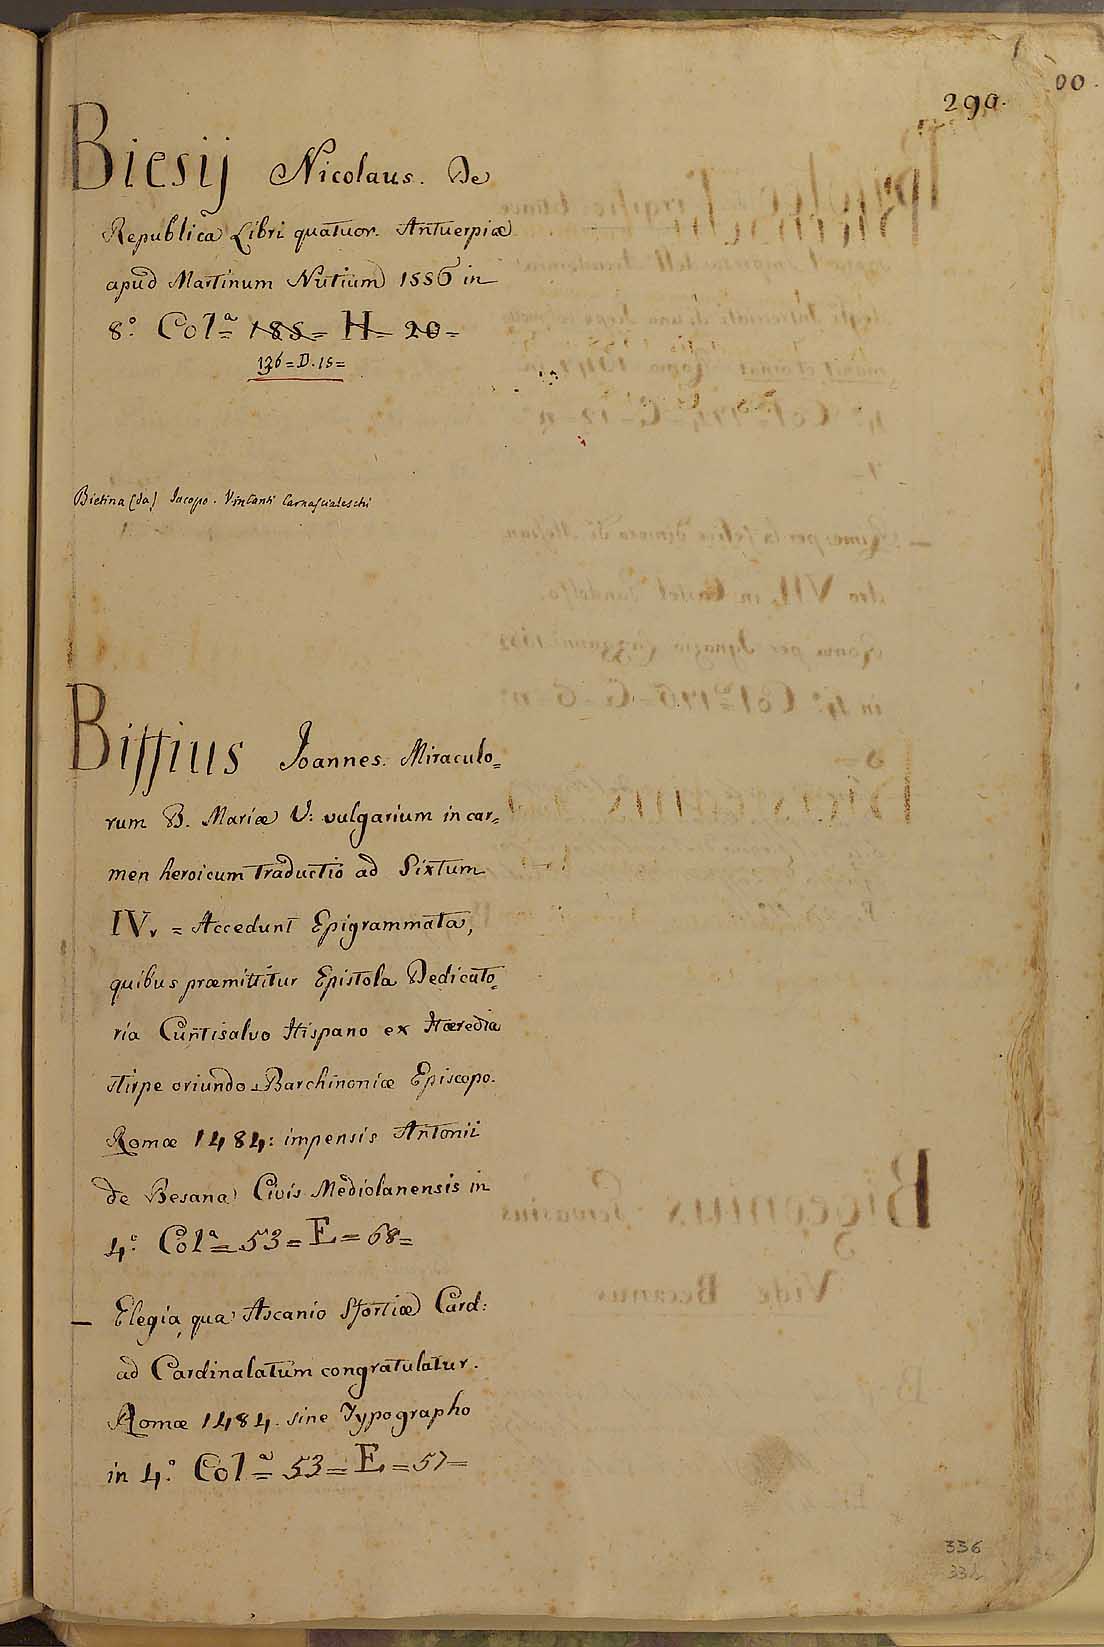 299.
00.
Biesij Nicolaus. De
Republica Libri quatuor. Antuerpiæ
apud Martinum Nutium 1556 in
8.° Col.ª 188 = H = 20 =
136 = D. 15 =
Bietina (da) Jacopo. Vincanti Carnascialeschi
Biffius Joannes. Miraculo=
rum B. Mariæ V: vulgarium in car=
men heroicum traductio ad Sixtum
IV. = Accedunt Epigrammata,
quibus præmittitur Epistola Dedicato=
ria Cuntisalvo Hispano ex Hæredia
stirpe oriundo Barchinoniæ Episcopo.
Romæ 1484: impensis Antonii
de Besana Civis Mediolanensis in
4.° Col.ª = 53 = E = 68 =
— Elegia, qua Ascanio Sfortiæ Card:
ad Cardinalatum congratulatur.
Romæ 1484. sine Typographo
in 4.° Col.ª = 53 = E = 57 =
336